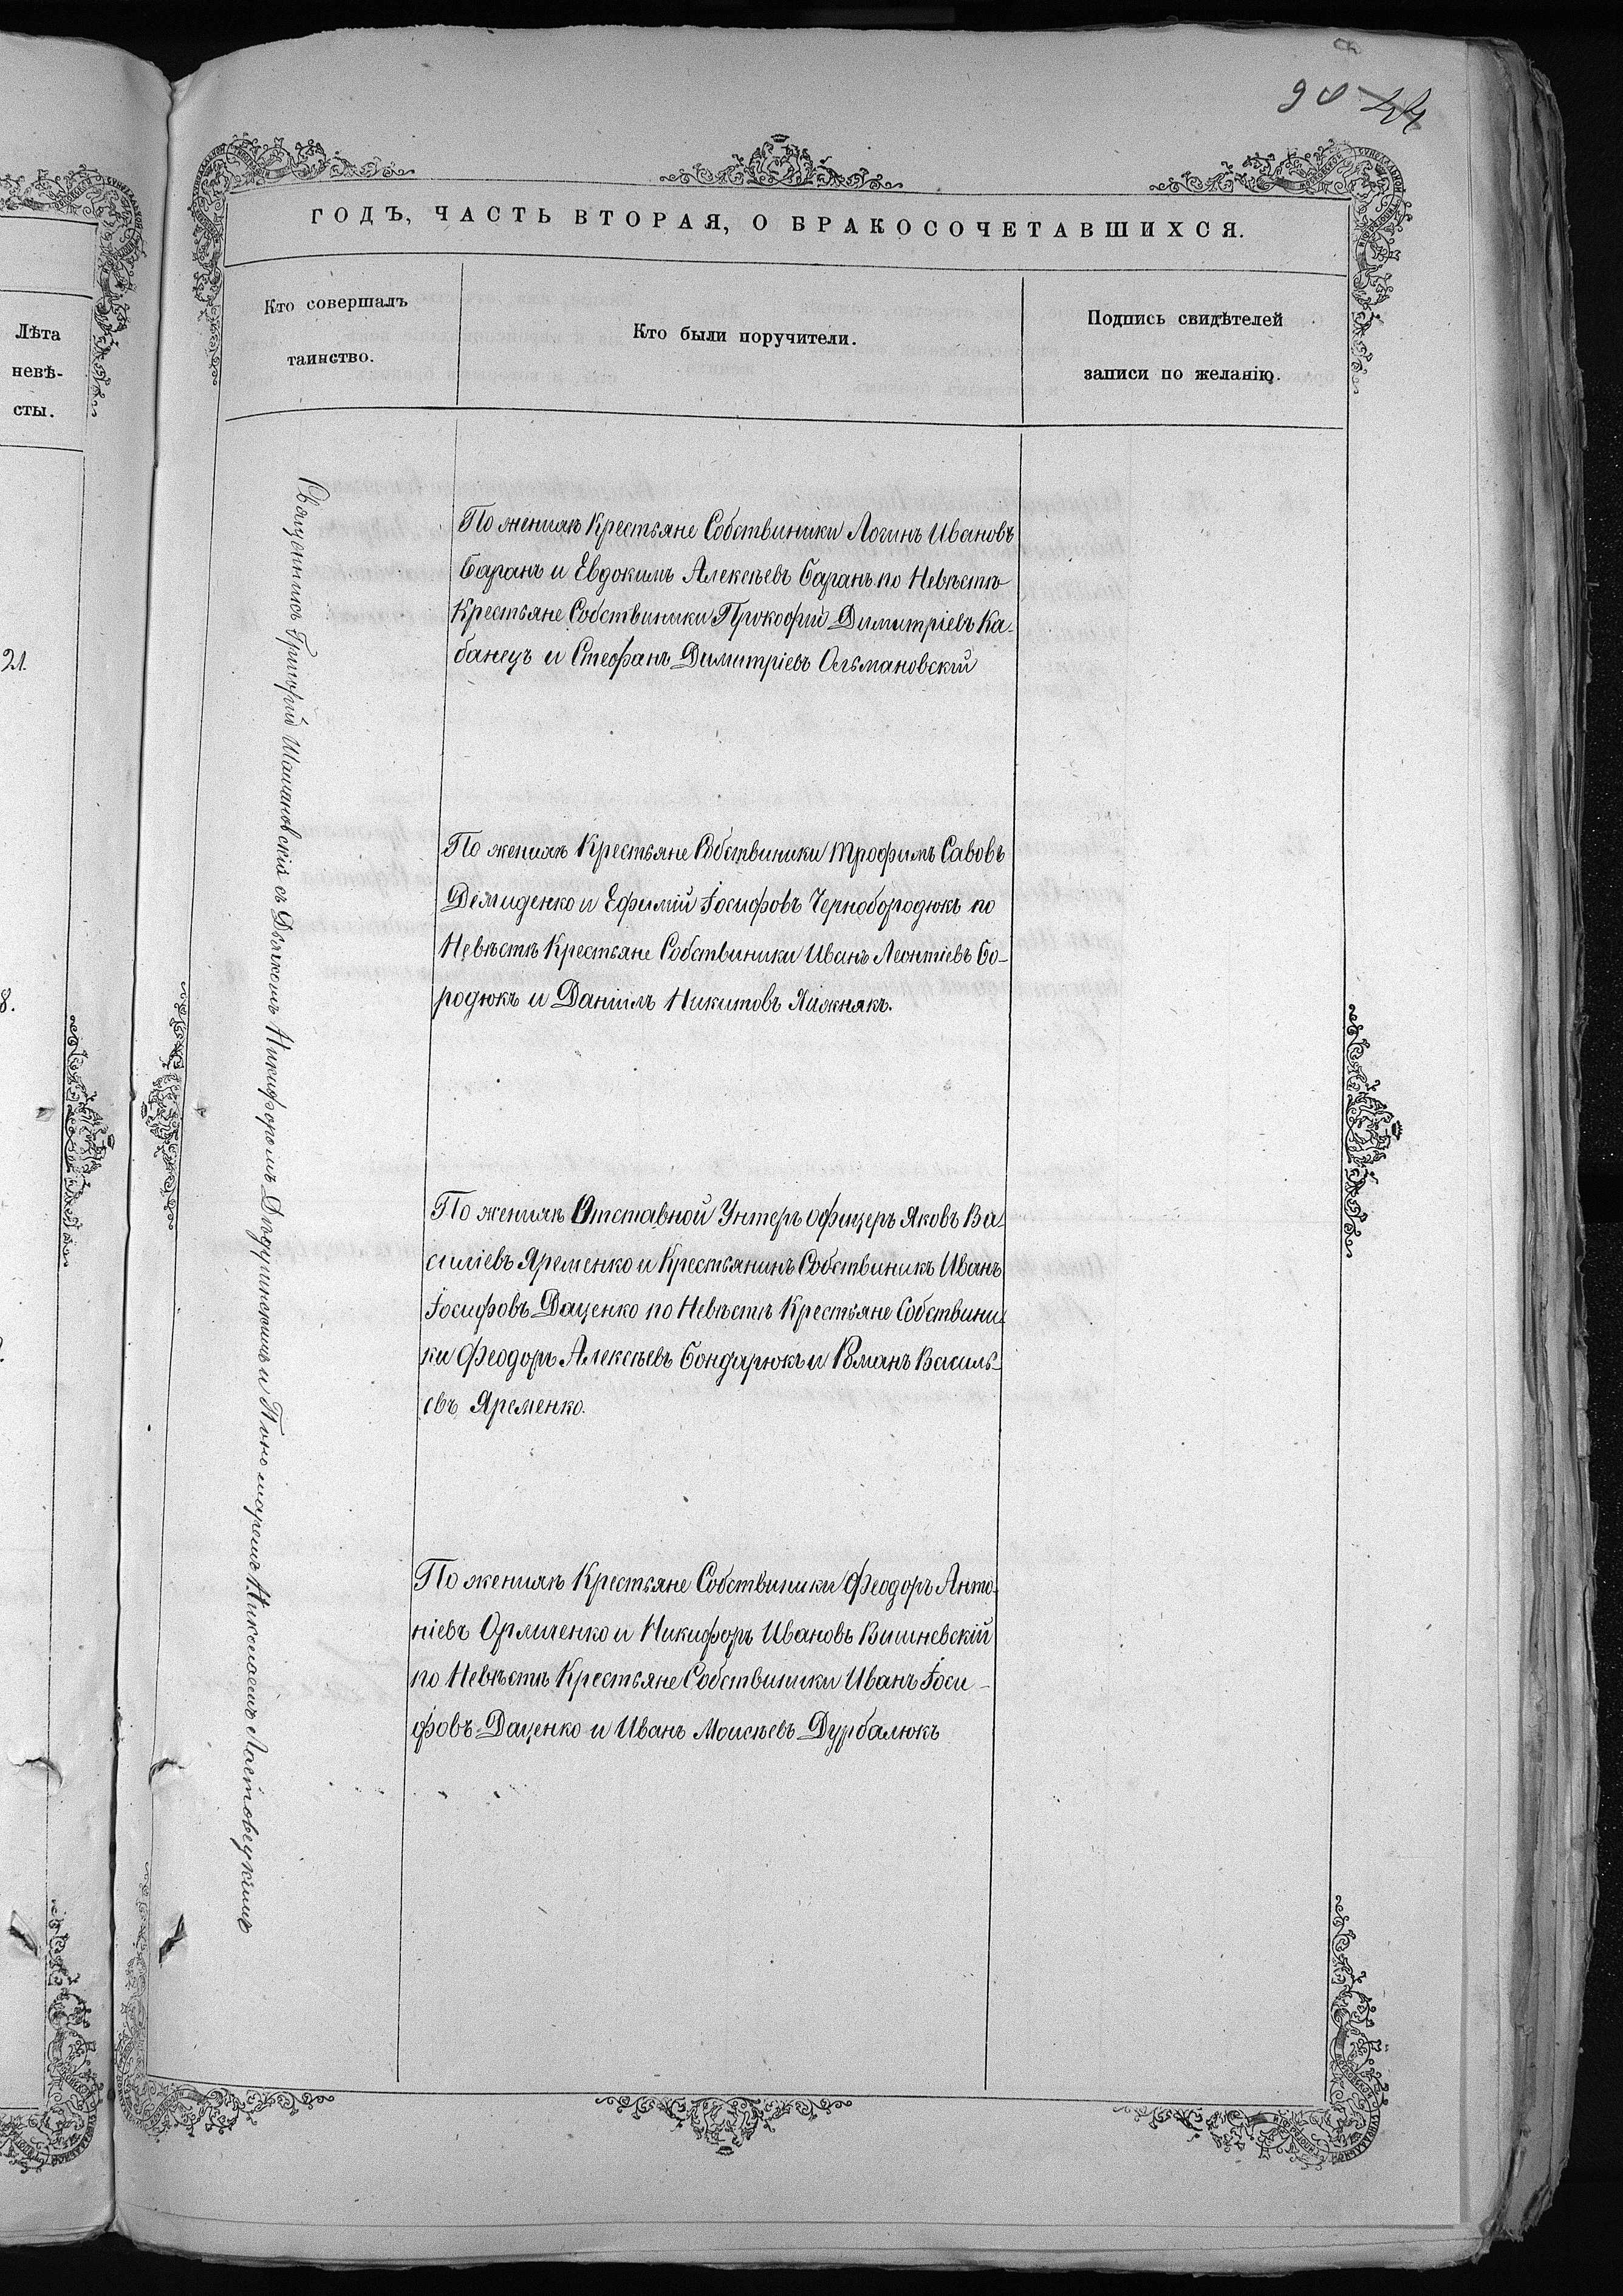 90 24
ГОДЪ, ЧАСТЬ ВТОРАЯ, О БРАКОСОЧЕТАВШИХСЯ.
Лѣта
невѣ-
сты.
21.
8.
Кто совершалъ
таинство.
Кто были поручители.
Подпись свидѣтелей
записи по желанію.
Священникъ Григорій Шамановскій съ Дьячкомъ Никифоромъ и Пономаремъ Николаемъ Ластовецкимъ
По жениxѣ Крестьяне Собствиники Логинъ Ивановъ
Баранъ и Евдокимъ Алексѣевъ Баранъ по Невѣстѣ
Крестьяне Собствиники Прокофій Димитріевъ Ка-
банецъ и Стефанъ Димитріевъ Ольмановскій
По жениxѣ Крестьяне Собствиники Трофимъ Савовъ
Демиденко и Ефимій Іосифовъ Чернобородюкъ по
Невѣстѣ Крестьяне Собствиники Иванъ Леонтіевъ Бо-
родюкъ и Даніилъ Никитовъ Хижнякъ.
По жениxѣ Отставной Унтеръ офицеръ Яковъ Ва-
силіевъ Яременко и Крестьянинъ Собствиникъ Иванъ
Іосифовъ Даценко по Невѣстѣ Крестьяне Собствини-
ки Феодоръ Алексѣевъ Бондарюкъ и Романъ Василь-
евъ Яременко.
По жениxѣ Крестьяне Собствиники Феодоръ Анто-
ніевъ Орличенко и Никифоръ Ивановъ Вишневскій
по Невѣстѣ Крестьяне Собствиники Иванъ Іоси-
фовъ Даценко и Иванъ Моисѣевъ Дурбалюкъ